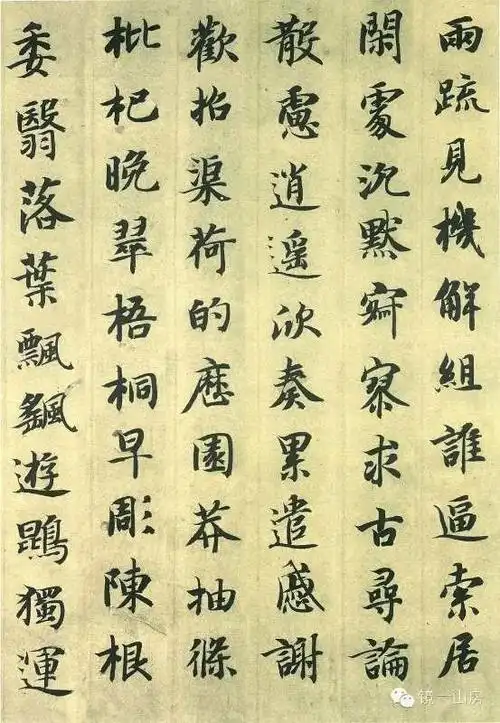 兩疏見機解組誰逼索居
閑處沉默寂寥求古尋論
散慮逍遥欣奏累遣慼謝
歡招渠荷的歷園莽抽條
枇杷晚翠梧桐早彫陳根
委翳落葉飄颻遊鵾獨運
镜一山房